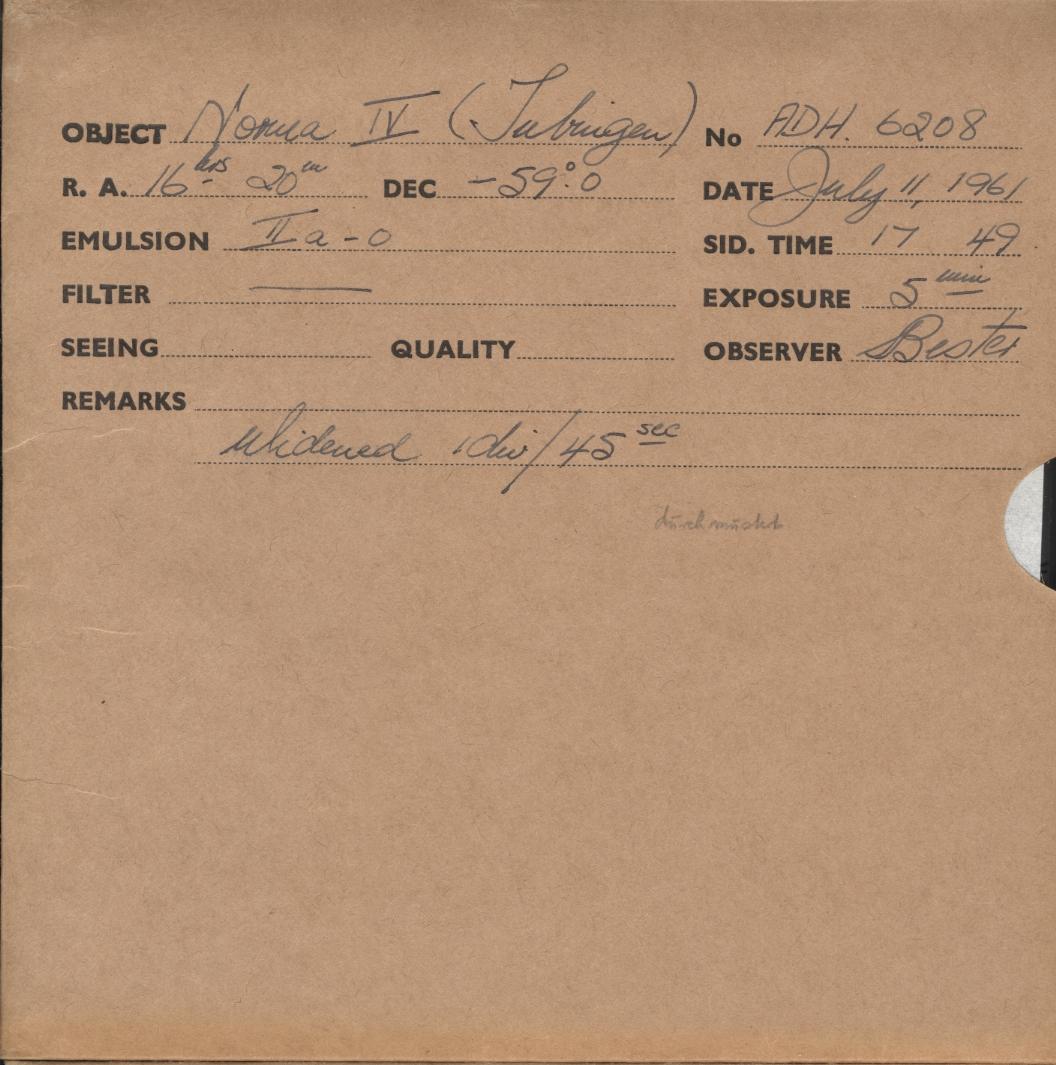 OBJECT Norma IV (Tubingen) No ADH. 6208
R. A. 16hrs 20m DEC -59°.0 DATE July 11, 1961
EMULSION IIa-o SID. TIME 17 49
FILTER — EXPOSURE 5 min
SEEING QUALITY OBSERVER Bester
REMARKS
Widened 1 div/45 sec
durchmustert